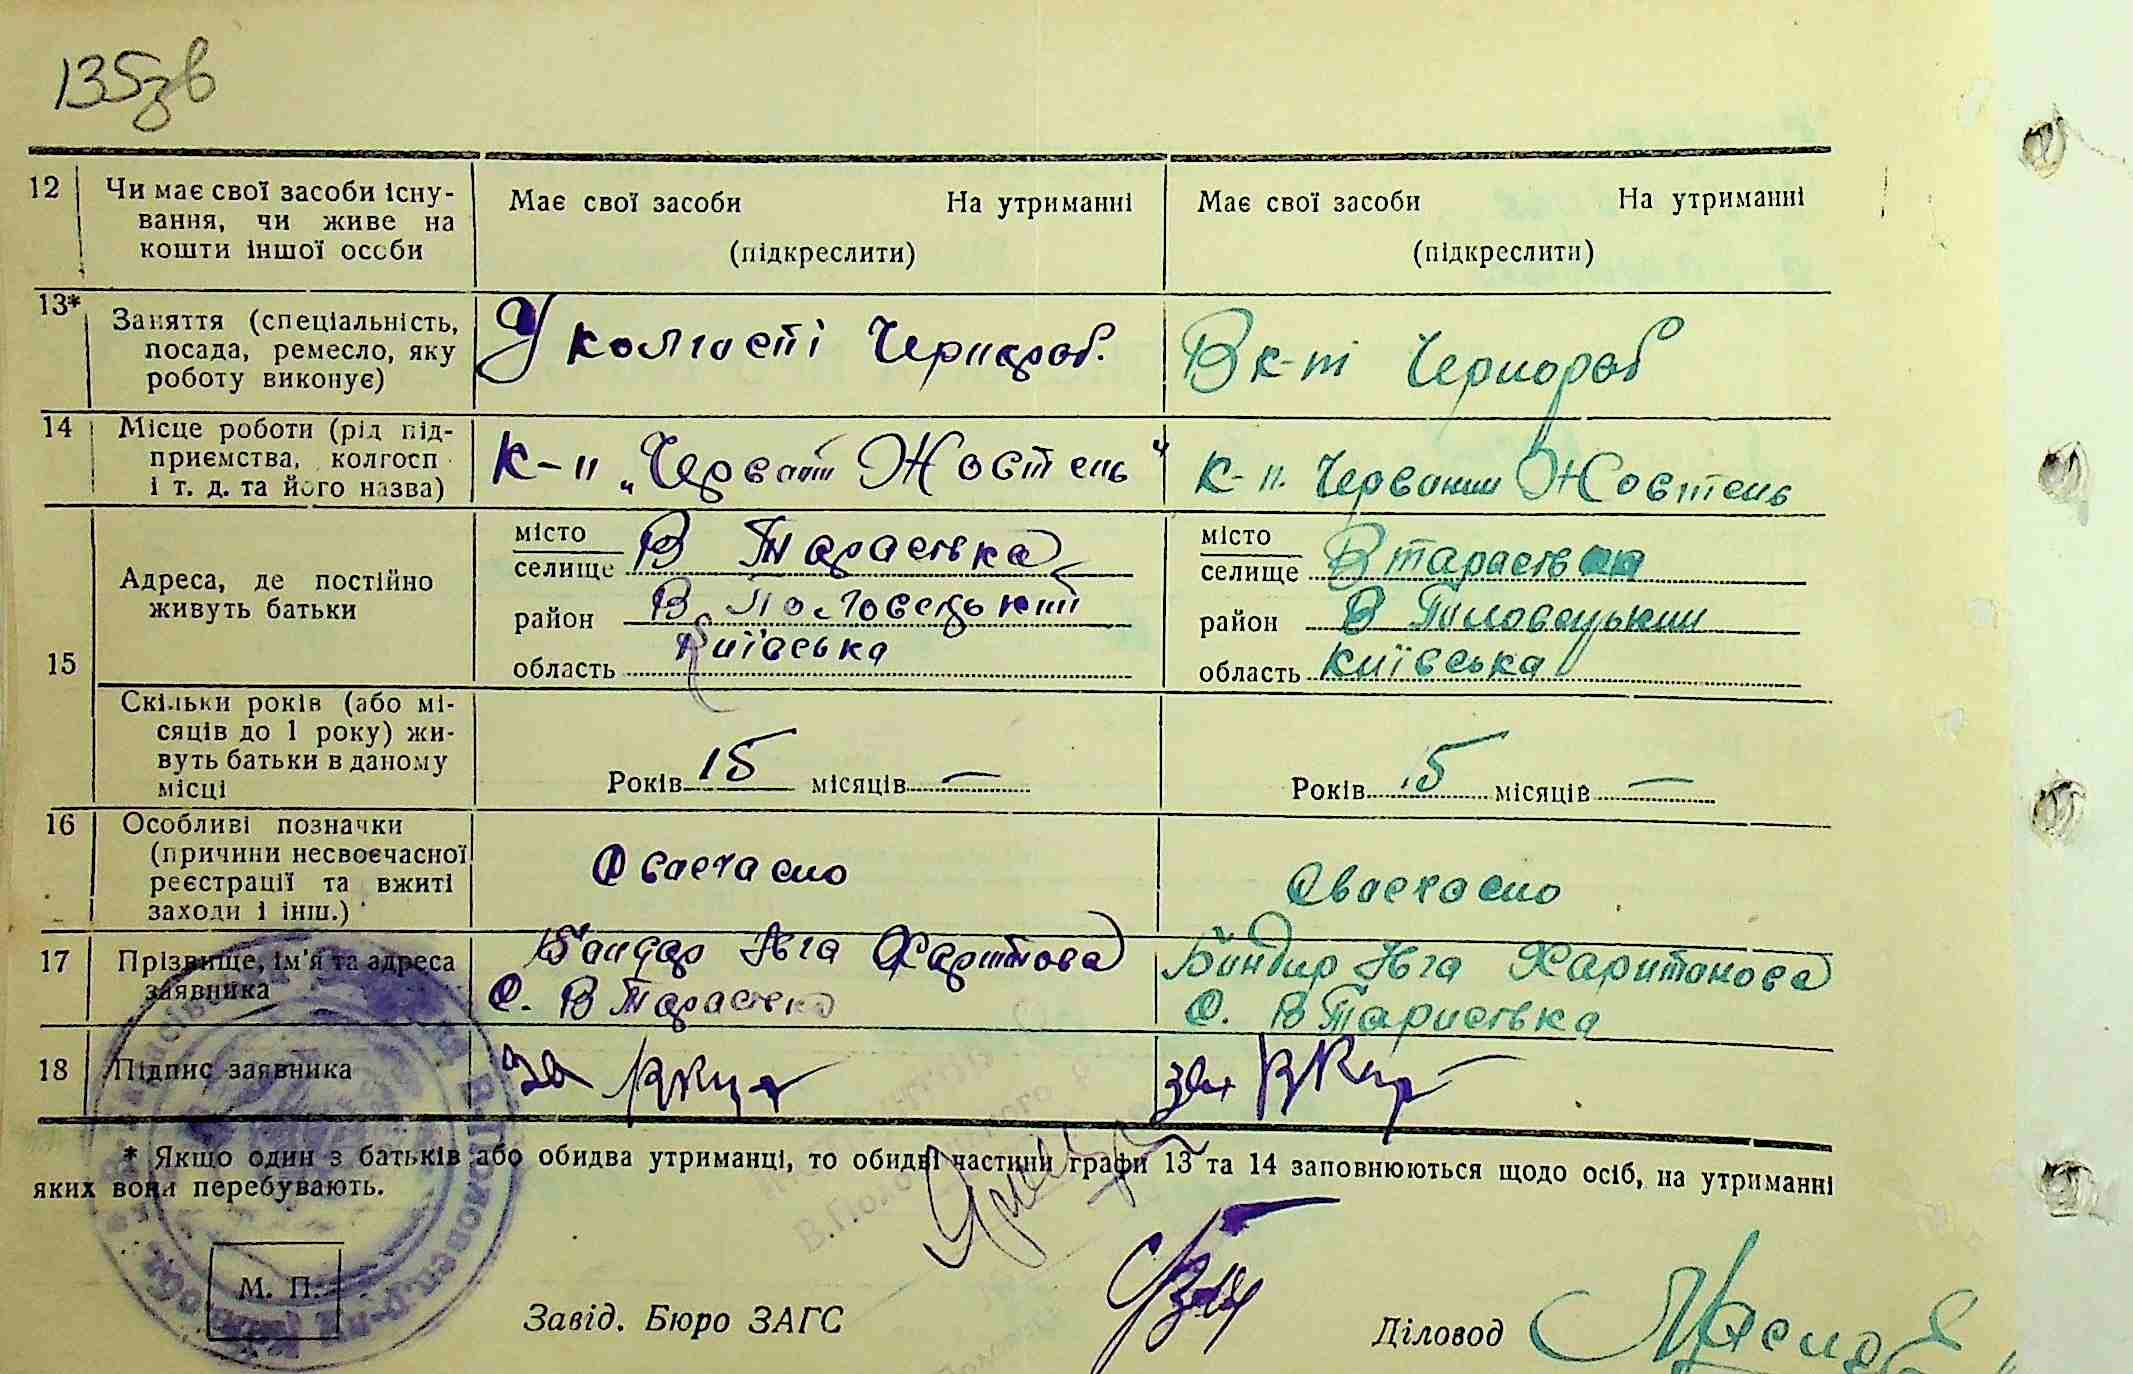 135зв
12 Чи має свої засоби існу-
вання, чи живе на
кошти іншої особи
Має свої засоби На утриманні
(підкреслити)
Має свої засоби На утриманні
(підкреслити)
13* Заняття (спеціальність,
посада, ремесло, яку
роботу виконує)
У колгості Чернороб.
В к-ті Чернороб
14 Місце роботи (рід під-
приємства, колгосп
і т. д. та його назва)
К-п „Червоний Жовтень"
К-п. Червоний Жовтень
15 Адреса, де постійно
живуть батьки
місто
селище В Тарасівка
район В Половецький
область Київська
місто
селище В Тарасівка
район В Половецький
область Київська
Скільки років (або мі-
сяців до 1 року) жи-
вуть батьки в даному
місці
Років 15 місяців —
Років 15 місяців —
16 Особливі позначки
(причини несвоєчасної
реєстрації та вжиті
заходи і інш.)
Своєчасно
Своєчасно
17 Прізвище, ім'я та адреса
заявника
Бондар Ївга Харитонова
С. В Тарасівка
Бондар Ївга Харитонова
С. В Тарасівка
18 Підпис заявника
за
за
* Якщо один з батьків або обидва утриманці, то обидві частини графи 13 та 14 заповнюються щодо осіб, на утриманні
яких вони перебувають.
М. П.
Завід. Бюро ЗАГС
Діловод